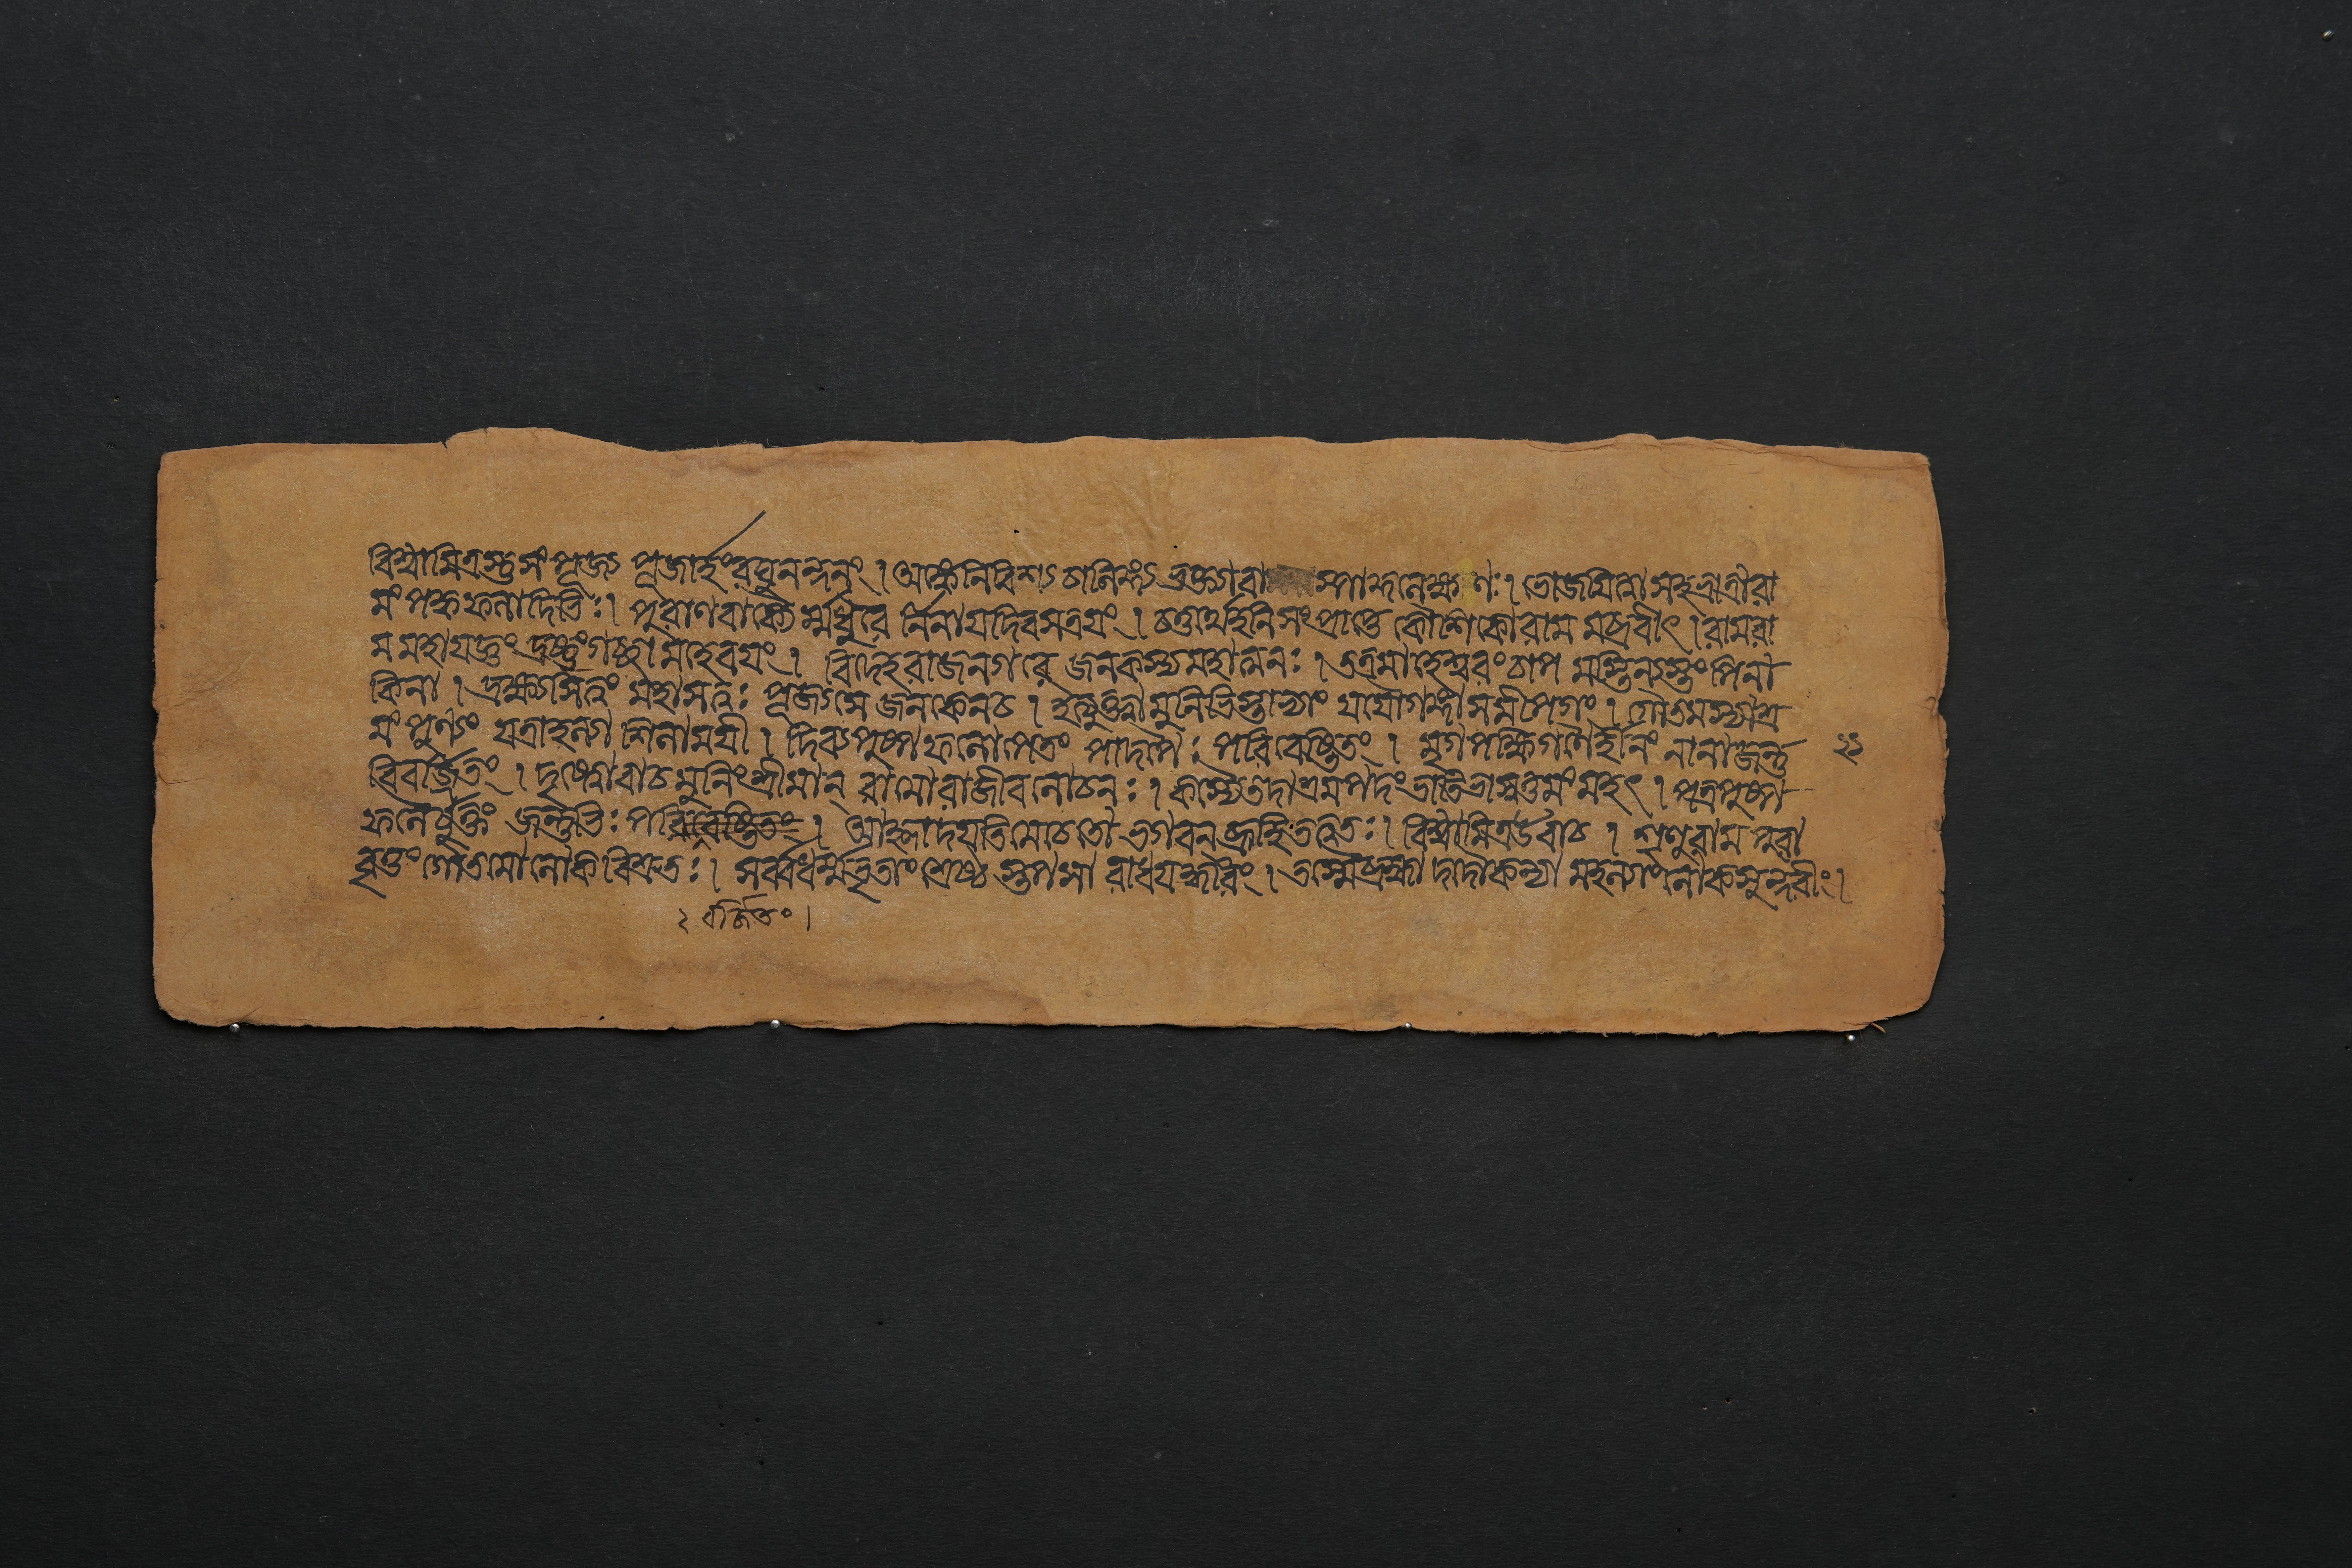 বিশ্বামিত্রস্তু সংপূজ্য পূজার্হং রঘুনন্দনং । অঙ্কে নিবিশ্য চালিঙ্গ্য ভক্ত্যা বাষ্পাকুলেক্ষণঃ । ভোজয়িত্বা সহ ভ্রাত্রা রা
মং পক্কফলাদিভিঃ । পুরাণবাক্যৈর্ম্মধুরৈ র্নিনায় দিবসত্রয়ং । চতুর্থেহনি সংপ্রাপ্তে কৌশিকো রাম মব্রবীৎ । রাম রা
ম মহাযজ্ঞং দ্রষ্টুং গচ্ছা মহে বয়ং । বিদেহরাজনগরে জনকস্য মহাত্মনঃ । তত্র মাহেশ্বরং চাপ মস্তি ন্যস্তং পিনা
কিনা । দ্রক্ষ্যসি ত্বং মহাসত্ত্বঃ পূজ্যসে জনকেন চ । ইত্যুক্ত্বা মুনিভিস্তাভ্যাং যযৌ গঙ্গা সমীপগং । গৌতমস্যাশ্র
মং পুণ্যং যত্রাহল্যা শিলাময়ী । দিব্যপুষ্পফলোপেতং পাদপৈঃ পরিবেষ্টিতং । মৃগপক্ষিগণৈর্হীনং নানাজন্তু
বিবর্জিতং । দৃষ্ট্বোবাচ মুনিং শ্রীমান্ রামো রাজীবলোচনঃ । কস্যৈতদাশ্রমপদং ভাতি মহৎ । পত্রপুষ্প
ফলৈর্যুক্তং জন্তুভিঃ পরিবেষ্টিতং । আহ্লাদয়তি মে চেতো ভগবন ব্রূহি তত্ত্বতঃ । বিশ্বামিত্র উবাচ । শৃণু রাম পুরা
বৃত্তং গৌতমো লোকবিশ্রুতঃ । সর্ব্বধর্ম্মভৃতাং শ্রেষ্ঠ স্তপসা রাধয়ন্হরিং । তস্মৈ ব্রহ্মা দদৌ কন্যা মহল্যাং লোকসুন্দরীং ।
২ বর্জিতং ।